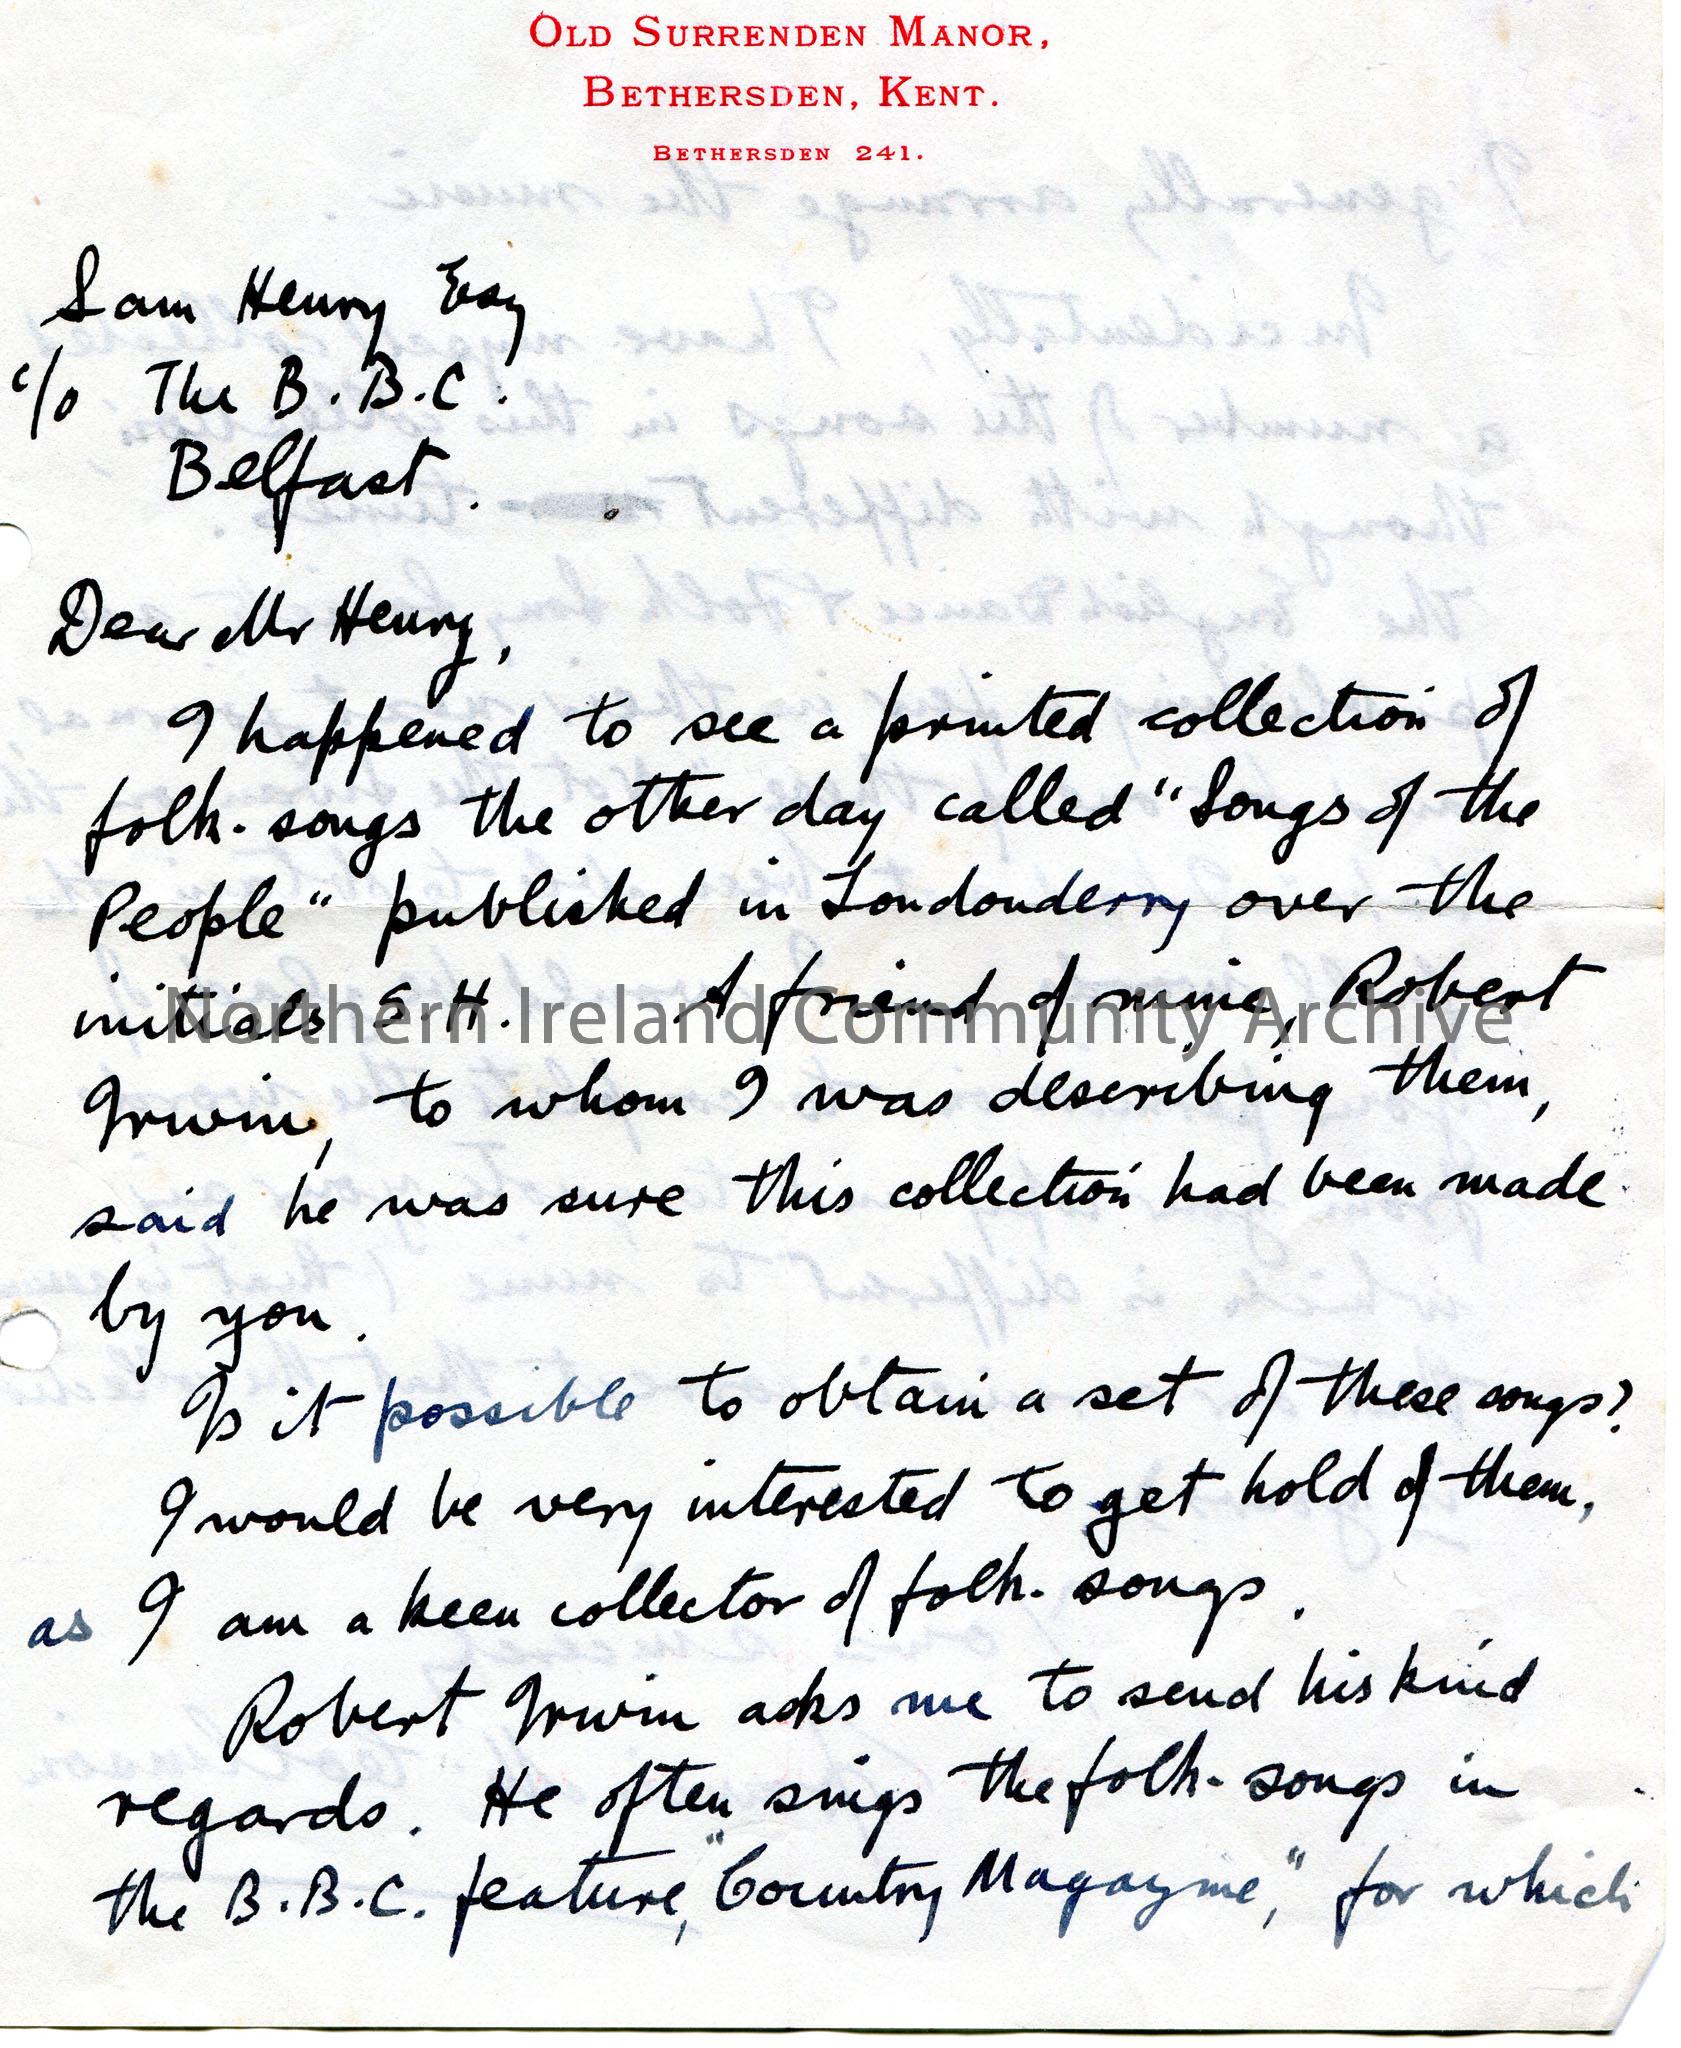 OLD SURRENDEN MANOR,
BETHERSDEN, KENT.
BETHERSDEN 241.
Sam Henry Esq
c/o The B.B.C.
Belfast.
Dear Mr Henry,
I happened to see a printed collection of
folk-songs the other day called "Songs of the
People" published in Londonderry over the
initials S.H. A friend of mine, Robert
Irwin, to whom I was describing them,
said he was sure this collection had been made
by you.
Is it possible to obtain a set of these songs?
I would be very interested to get hold of them,
as I am a keen collector of folk-songs.
Robert Irwin asks me to send his kind
regards. He often sings the folk-songs in
the B.B.C. feature, "Country Magazine," for which
Northern Ireland Community Archive